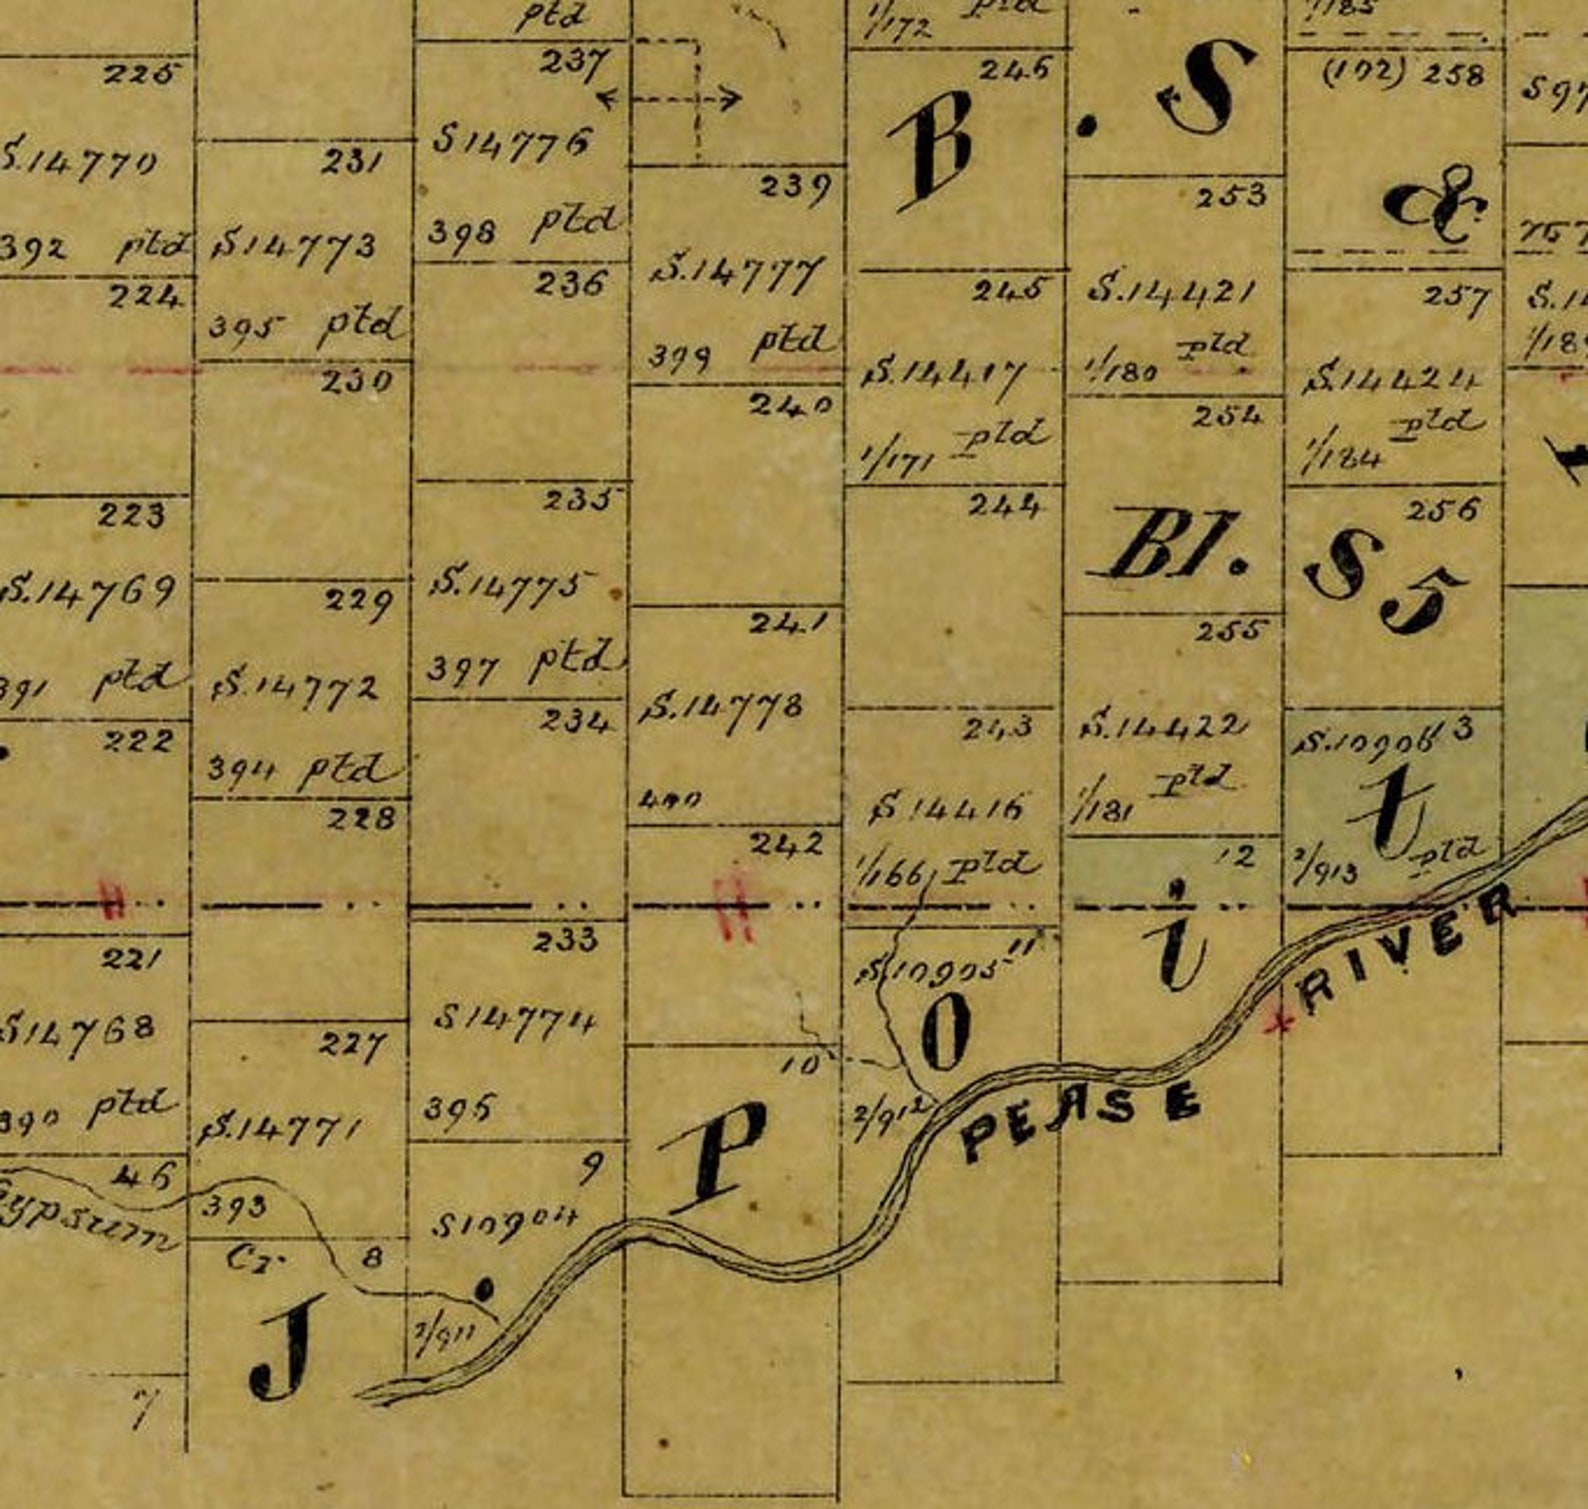 225
S.14770
392 ptd
224
223
S.14769
391 ptd
222
221
S14768
390 ptd
46
Gypsum
7
231
S14773
395 ptd
230
229
S.14772
394 ptd
228
227
S.14771
393
Cr.
8
J
ptd
237
S14776
398 ptd
236
235
S.14775
397 ptd
234
233
S14774
9
S10904
2/911
239
S.14777
399 ptd
240
241
S.14778
400
242
10
P
1/172 ptd
246
B
245
S.14417
1/171 ptd
244
243
S14416
1/166 ptd
11
S.10905
O
2/912
. S
253
S.14421
1/180 ptd
254
Bl.
255
S.14422
1/181 ptd
12
i
1/185
(192) 258
&
257
S.14424
1/184 ptd
256
S 5
3
t
2/913 ptd
PEASE RIVER